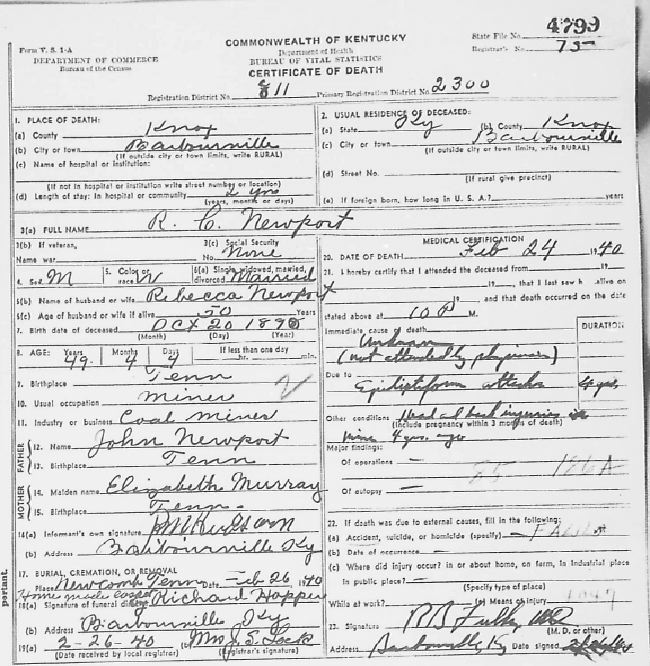 4799
Form V. S. 1-A
COMMONWEALTH OF KENTUCKY
State File No.
DEPARTMENT OF COMMERCE
Department of Health
Registrar's No. 75
Bureau of the Census
BUREAU OF VITAL STATISTICS
CERTIFICATE OF DEATH
Registration District No. 811 Primary Registration District No. 2300
1. PLACE OF DEATH:
(a) County Knox
(b) City or town Barbourville
(If outside city or town limits, write RURAL)
(c) Name of hospital or institution:
(If not in hospital or institution write street number or location)
(d) Length of stay: In hospital or community 2 yrs
(years, months or days)
2. USUAL RESIDENCE OF DECEASED:
(a) State Ky (b) County Knox
(c) City or town Barbourville
(If outside city or town limits, write RURAL)
(d) Street No.
(If rural give precinct)
(e) If foreign born, how long in U. S. A.? years
3(a) FULL NAME R. C. Newport
3(b) If veteran,
Name war
3(c) Social Security
No. None
4. Sex M
5. Color or
race W
6(a) Single, widowed, married,
divorced Married
6(b) Name of husband or wife Rebecca Newport
6(c) Age of husband or wife if alive 50 Years
7. Birth date of deceased Oct 20 189
(Month) (Day) (Year)
8. AGE: Years Months Days If less than one day
49 4 4 hr. min.
9. Birthplace Tenn
10. Usual occupation Miner
11. Industry or business Coal Mines
FATHER
12. Name John Newport
13. Birthplace Tenn
MOTHER
14. Maiden name Elizabeth Murray
15. Birthplace Tenn.
16(a) Informant's own signature
(b) Address Barbourville Ky
17. BURIAL, CREMATION, OR REMOVAL
Place Newcomb Tenn Date Feb 26 1940
18(a) Signature of funeral Richard Hopper
(b) Address Barbourville Ky
19(a) 2-26-40 (b) Mrs
(Date received by local registrar) (Registrar's signature)
MEDICAL CERTIFICATION
20. DATE OF DEATH Feb 24 1940
21. I hereby certify that I attended the deceased from 19
19 , that I last saw h alive on
19 and that death occurred on the date
stated above at 10 P M.
Immediate cause of death DURATION
Unknown
(not attended by physician)
Due to
Epileptiform attacks 4 yrs,
Other conditions Head & back injuries in
(Include pregnancy within 3 months of death)
mine 4 yrs. ago
Major findings:
Of operations —
85 186A
Of autopsy —
22. If death was due to external causes, fill in the following:
(a) Accident, suicide, or homicide (specify)
(b) Date of occurrence —
(c) Where did injury occur? in or about home, on farm, in industrial place
in public place? —
(Specify type of place)
While at work? (e) Means of injury
23. Signature
(M.D. or other)
Address Barbourville Ky Date signed
portant.